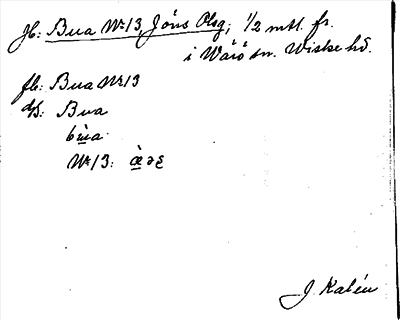 Jb: Bua Nr 13, Jöns Olsg; 1/2 mtl. fr.
i Wärö sn. Wiske hd.
fb: Bua Nr 13
ds: Bua
bùa
Nr 13:
J. Kalén